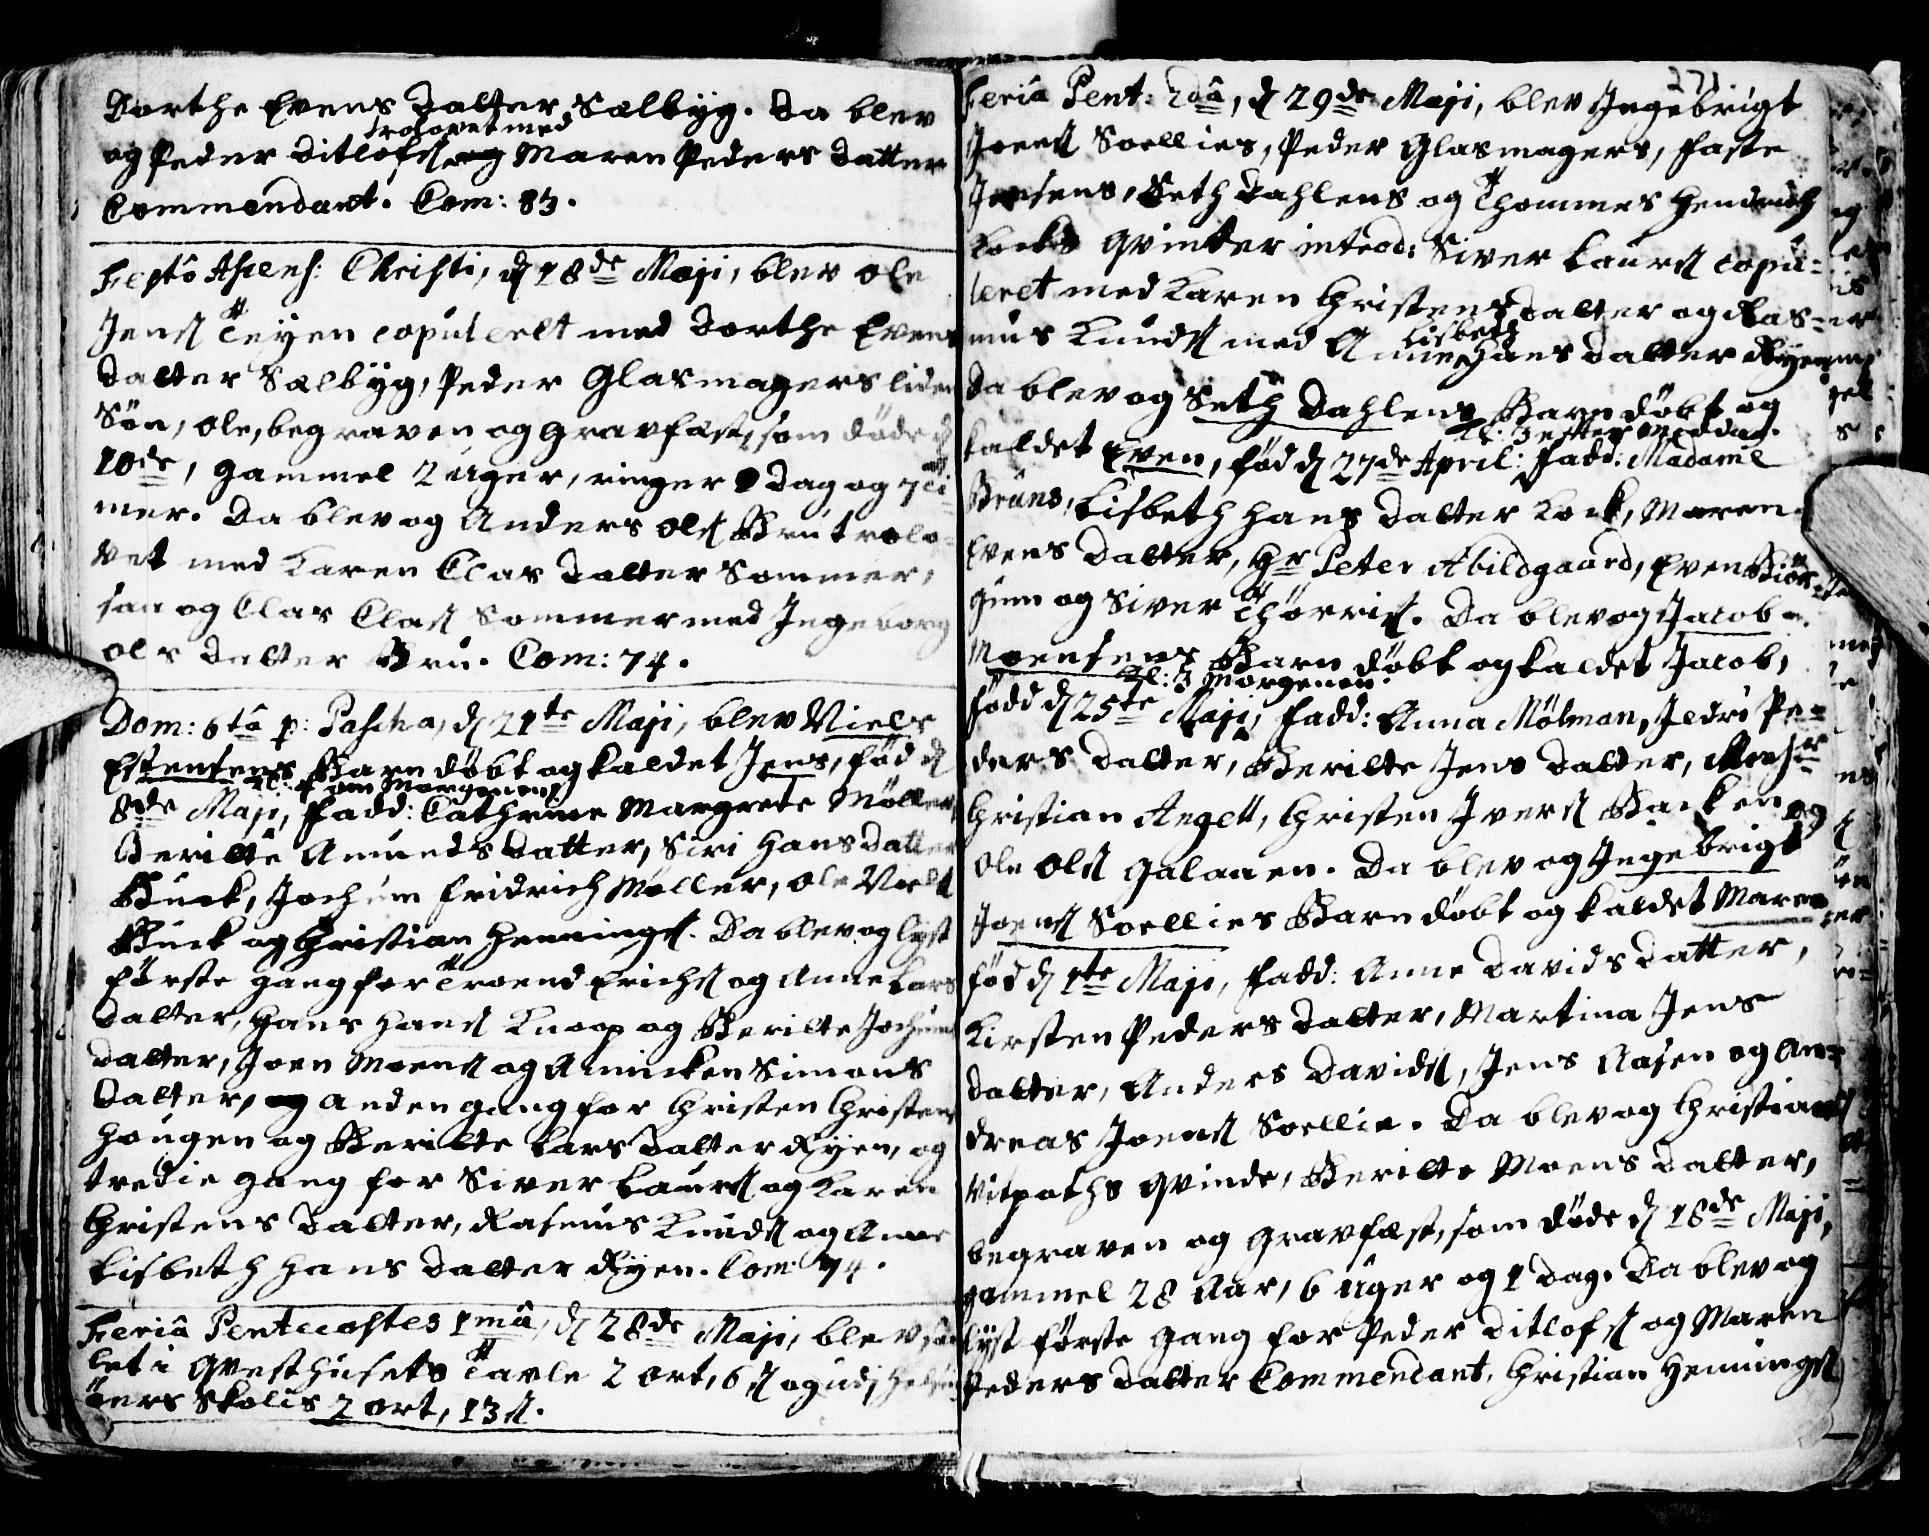 Dorthe Evens Datter Sælbyg. Da blev
og Peder Ditlofs: trolovet med Maren Peders Datter
Commendant. Com: 83.
Festo Ascens: Christi, d 18de Maji, blev Ole
Jens: Teyen copuleret med Dorthe Evens
Datter Sælbyg, Peder Glasmagers liden
Søn, Ole, begraven og gravfæst, som døde d
10de, gammel 2 uger, ringer 1 dag og 7 ti
mer. Da blev og Anders Ols: Bru trolo-
vet med Karen Clas Datter Sommer,
san og Clas Clas: Sommer med Ingeborg
Ols Datter Bru. Com: 74.
Dom: 6ta p: Pascha, d 21te Maji, blev Niels
Estensens Barn døbt og kaldet Jens, fød d
8de Maji, Kl: 4 om Morgenen, Fadd: Cathrine Margrete Møller,
Berille Amunds Datter, Siri Hans Datter
Buck, Jochum Fridrich Møller, Ole Niels:
Buck og Christian Hennings: Da blev og lyst
første gang for Troend Erichs: og Anne Lars
Datter, Hans Hans: Knoop og Berilte Jochums
Datter, Joen Moens: og Annicken Simons
Datter, anden gang for Christen Christens:
Hougen og Berilte Lars Datter Ryen, og
tredie gang for Siver Laurs: og Karen
Christens Datter, Rasmus Knuds: og Anne
Lisbeth Hans Datter Ryen. Com: 74.
Feria Pentecostes 1ma, d 28de Maji, blev sam
let i Qvesthusets Tavle 2 ort, 6 s: og udj
ers Skolis 2 ort, 13 s:.
271
Feria Pent: 2da, d 29de Maji, blev Ingebrigt
Joens: Soellies, Peder Glasmagers, Faste
Jensens, Seth Dahlens og Thommes Hendrich
Kocks Qvinder introd: Siver Laurs: copu-
leret med Karen Christens Datter og Ras-
mus Knuds: med Anne Lisbeth Hans Datter Ryen.
Da blev og Seth Dahlens Barn døbt og
kaldet Even, fød d 27de April: Kl: 3 efter Middag. Fadd: Madame
Bruns, Lisbeth Hans Datter Kock, Maren
Evens Datter, Hr Peter Abildgaard, Even Biør-
gum og Siver Thørris:. Da blev og Jacob
Moensens Barn døbt og kaldet Jacob,
født d 25te Maji, Kl: 3 Morgenen. Fadd: Anna Mølman, Jedri Pe-
ders Datter, Berilte Jens Datter, Monsr
Christian Angell, Christen Ivers: Backen og
Ole Ols: Galaaen. Da blev og Ingebrigt
Joens: Soellies Barn døbt og kaldet Maren
fød d 1te Maji, Fadd: Anne Davids Datter,
Kirsten Peders Datter, Martina Jens
Datter, Anders Davids:, Jens Aasen og An-
dreas Joens: Soellie. Da blev og Christian
Vitpoths Qvinde, Berilte Moens Datter,
begraven og gravfæst, som døde d 18de Maji,
gammel 28 Aar, 6 Uger og 1 dag. Da blev og
lyst første gang for Peder Ditlofs: og Maren
Peders Datter Commendant, Christian Hennings: